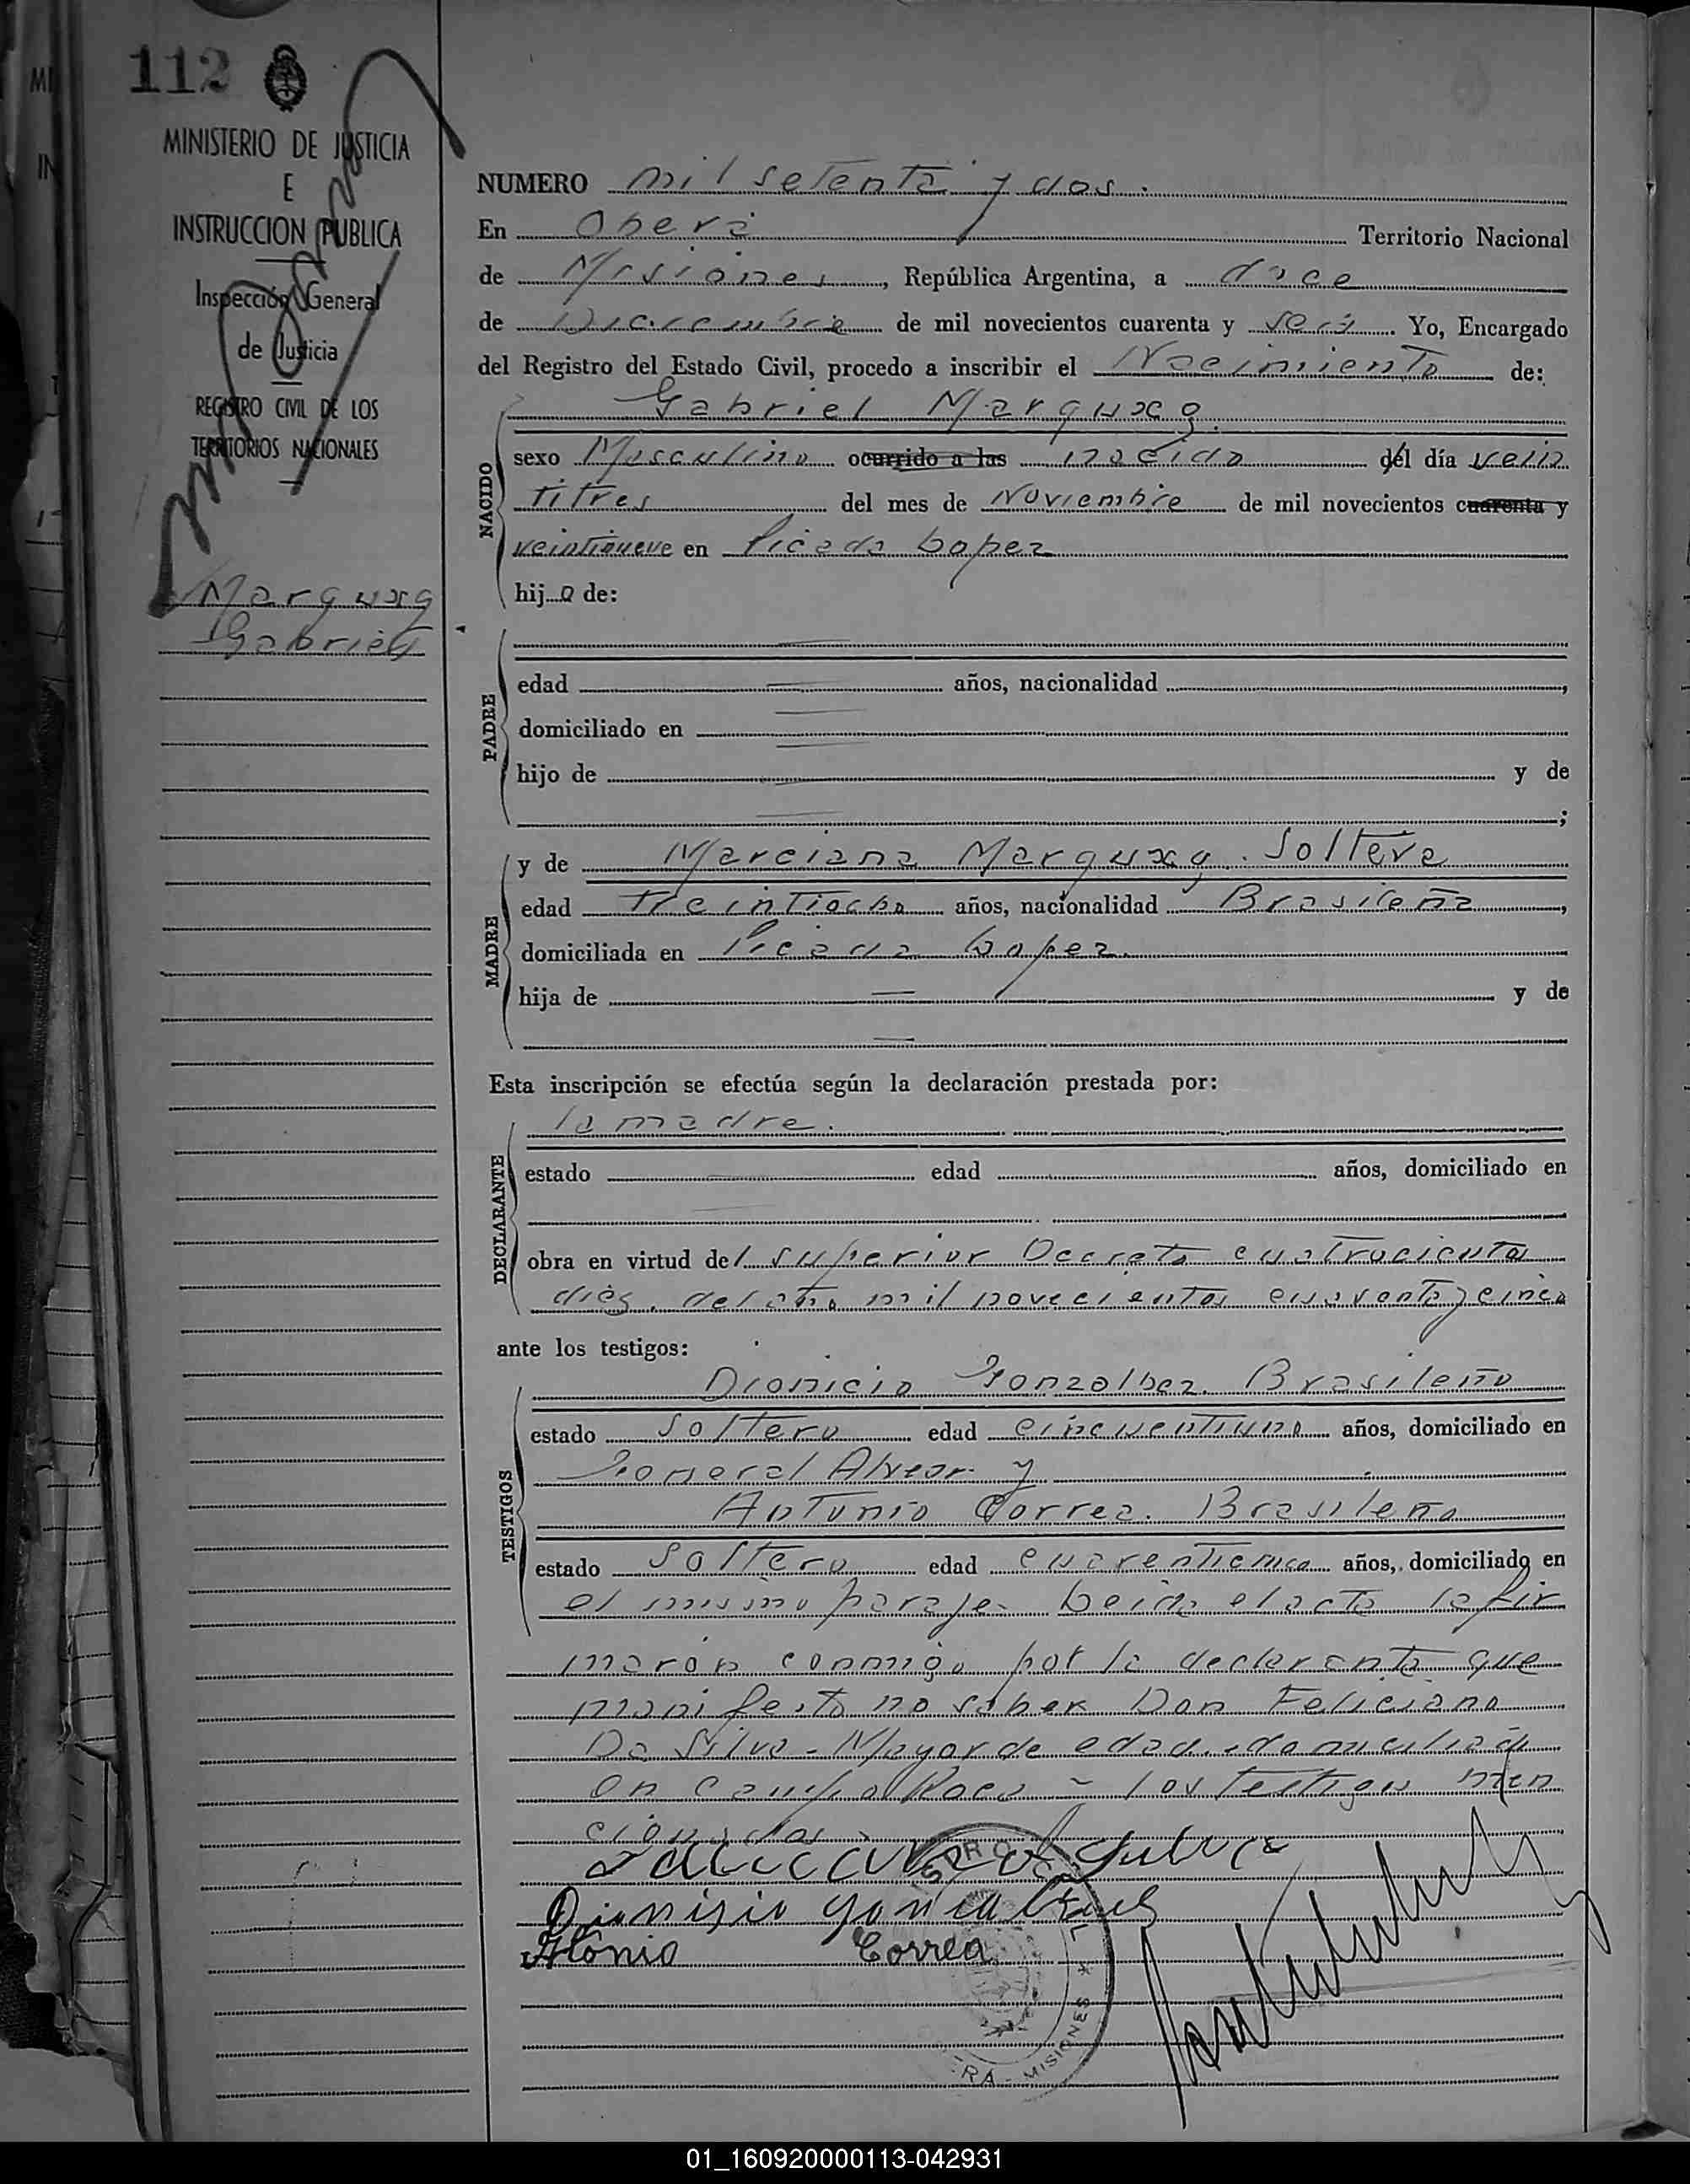 112
MINISTERIO DE JUSTICIA
E
INSTRUCCION PUBLICA
Inspección General
de Justicia
REGISTRO CIVIL DE LOS
TERRITORIOS NACIONALES
Marquxg
Gabriel
NUMERO mil setenta y dos.
En Oberá Territorio Nacional
de Misiones, República Argentina, a doce
de Diciembre de mil novecientos cuarenta y seis. Yo, Encargado
del Registro del Estado Civil, procedo a inscribir el Nacimiento de:
Gabriel Marquxg.
NACIDO
sexo Masculino ocurrido a las nacido del día vein
titres del mes de Noviembre de mil novecientos cuarenta y
veintinueve en Picada Lopez
hijo de:
PADRE
edad años, nacionalidad ,
domiciliado en
hijo de y de
;
MADRE
y de Marciana Marquxg. Soltera
edad treintiocho años, nacionalidad Brasileña,
domiciliada en Picada Lopez.
hija de — y de
—
Esta inscripción se efectúa según la declaración prestada por:
DECLARANTE
la madre.
estado edad años, domiciliado en
obra en virtud del superior Decreto cuatrocientos
diéz. del año mil novecientos cuarenta y cinco
ante los testigos:
TESTIGOS
Dionicio Gonzalbez. Brasileño
estado Soltero edad cincuentiuno años, domiciliado en
General Alvear y
Antonio Correa. Brasileño
estado Soltero edad cuarenticinco años, domiciliado en
el mismo paraje. Leida el acta la fir
maron conmigo por la declarante que
manifesto no saber Don Feliciano
Da Silva - Mayor de edad. domiciliado
en Campo - los testigos men
cionados.
Dionisio
Antonio Correa
MISIONES
01_160920000113-042931